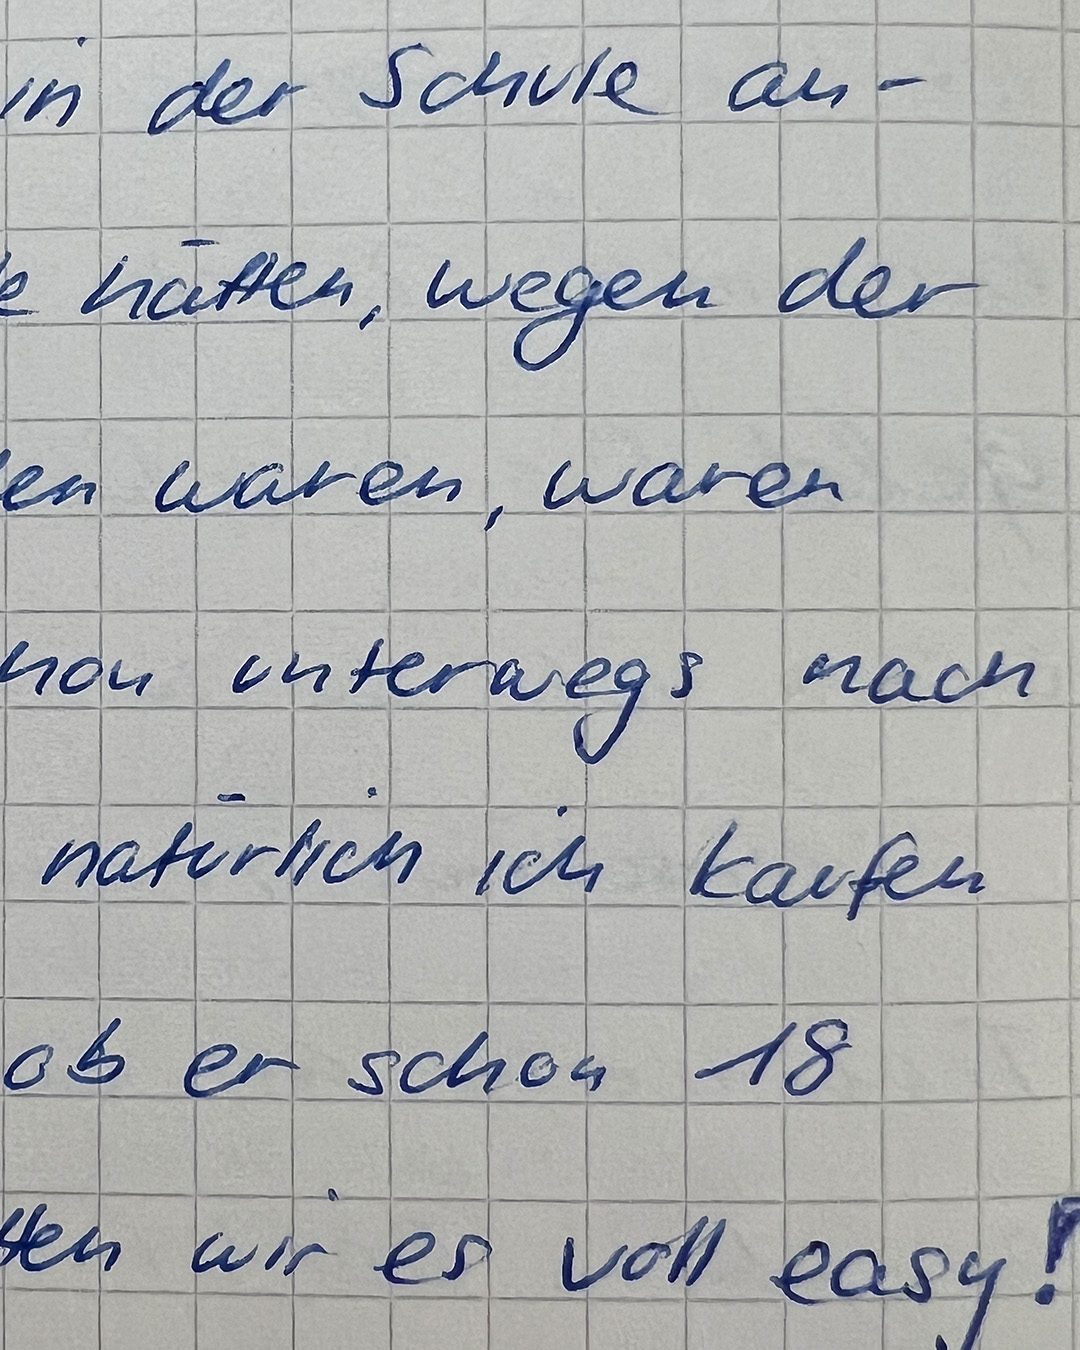 in der Schule an-
hätten, wegen der
waren, waren
unterwegs nach
natürlich ich kaufen
ob er schon 18
wir es voll easy!